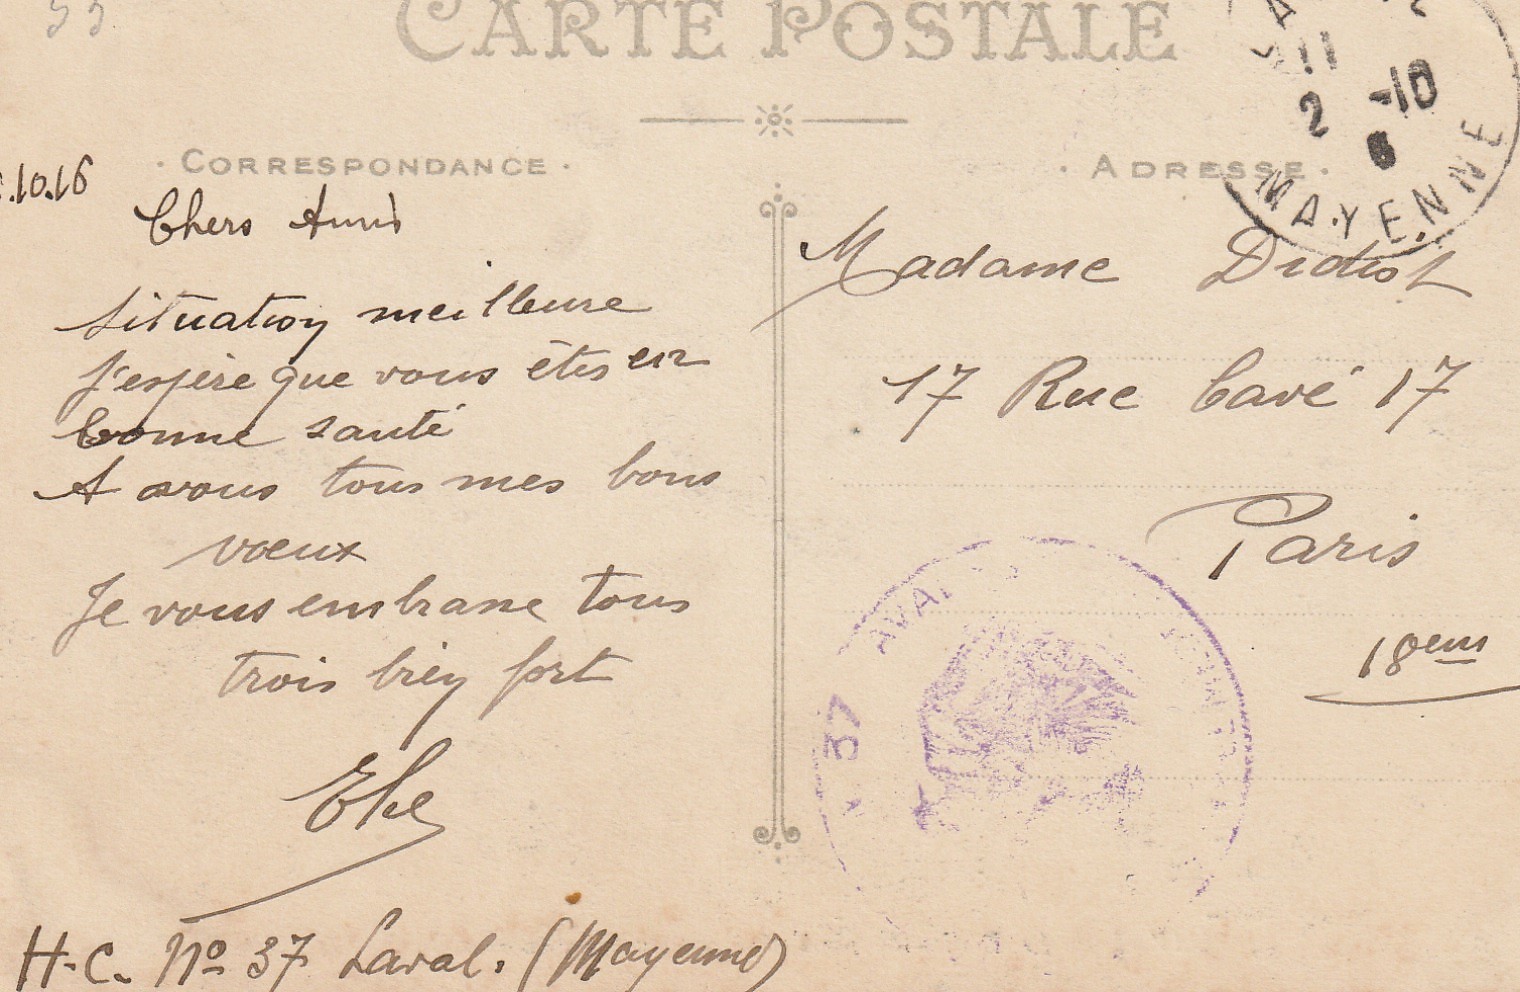 CARTE POSTALE
11
2 -10
MAYENNE
CORRESPONDANCE
ADRESSE
.10.16
Chers Amis
Situation meilleure
J'espère que vous êtes en
bonne santé
A vous tous mes bons
vœux
Je vous embrasse tous
trois bien fort
H.C. No 37 Laval. (Mayenne)
Madame Didiot
17 Rue Cavé 17
Paris
18em
37 AVAL